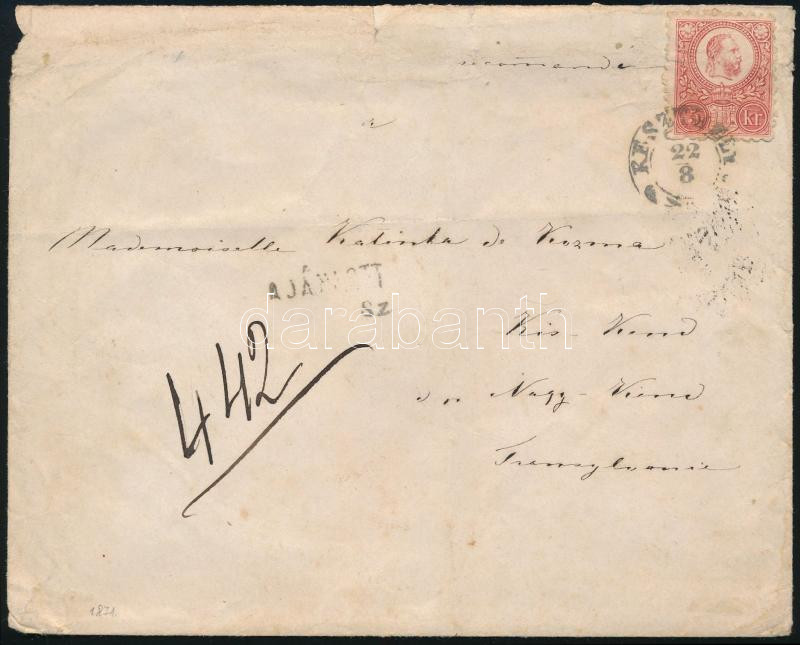 recomandé
5 Kr
KESZTHELY
22
8
a
Mademoiselle Katinka de Kozma
AJÁNLOTT
Sz
darabanth
Kis-Kend
Nagy-Kend
442
Transylvanie
1871.